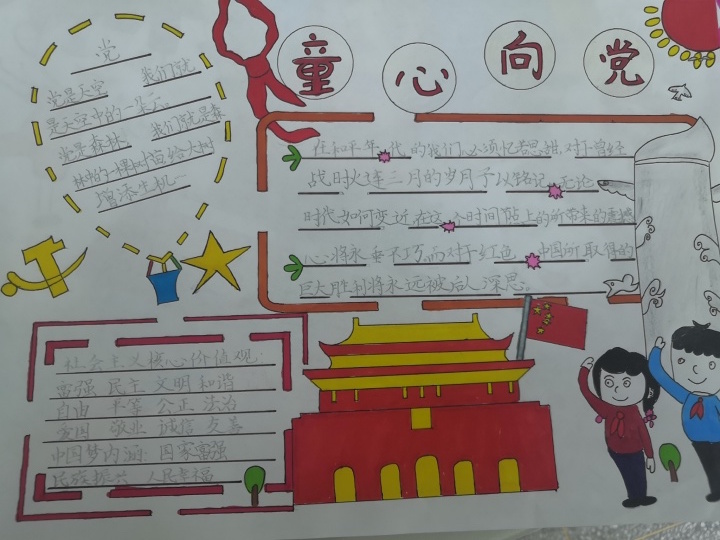 童心向党
党
党是天空 我们就
是天空中的一朵云
党是森林 我们就是森
林的一棵树苗给大树
增添生机~
在和平年代的我们必须忆苦思甜,对于曾经
战时火连三月的岁月予以铭记,无论
时代如何变迁,在这个时间 上的所带来的
心将永垂不朽,而对于红色 中国所取得的
巨大胜利将永远被后人深思。
社会主义核心价值观:
富强 民主 文明 和谐
自由 平等 公正 法治
爱国 敬业 诚信 友善
中国梦内涵:国家富强
民族振兴 人民幸福